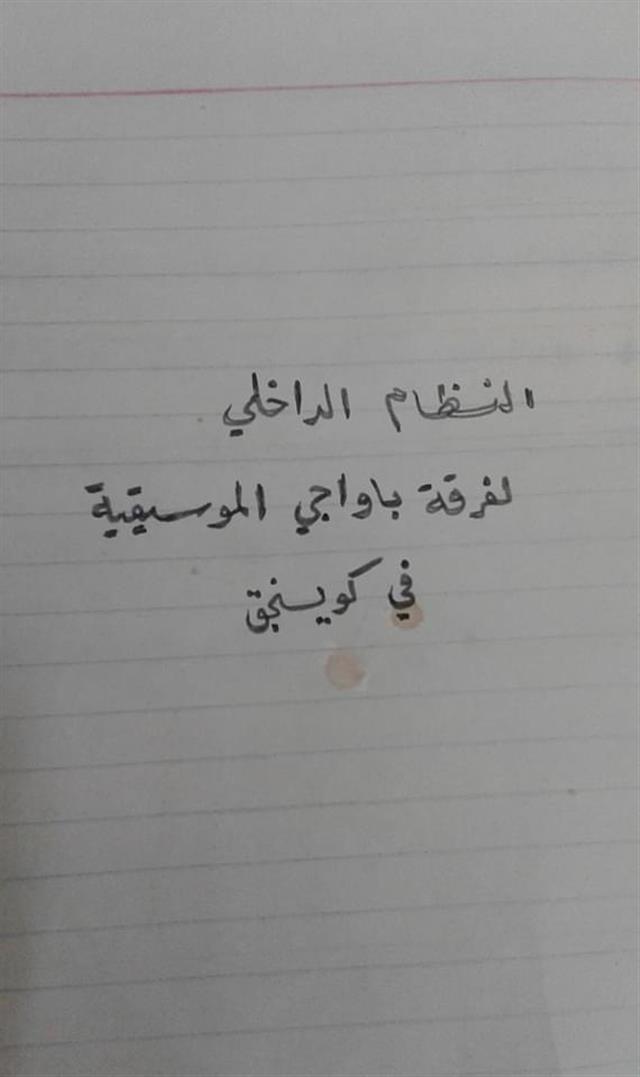 النظام الداخلي
لفرقة باواجي الموسيقية
في كويسنجق